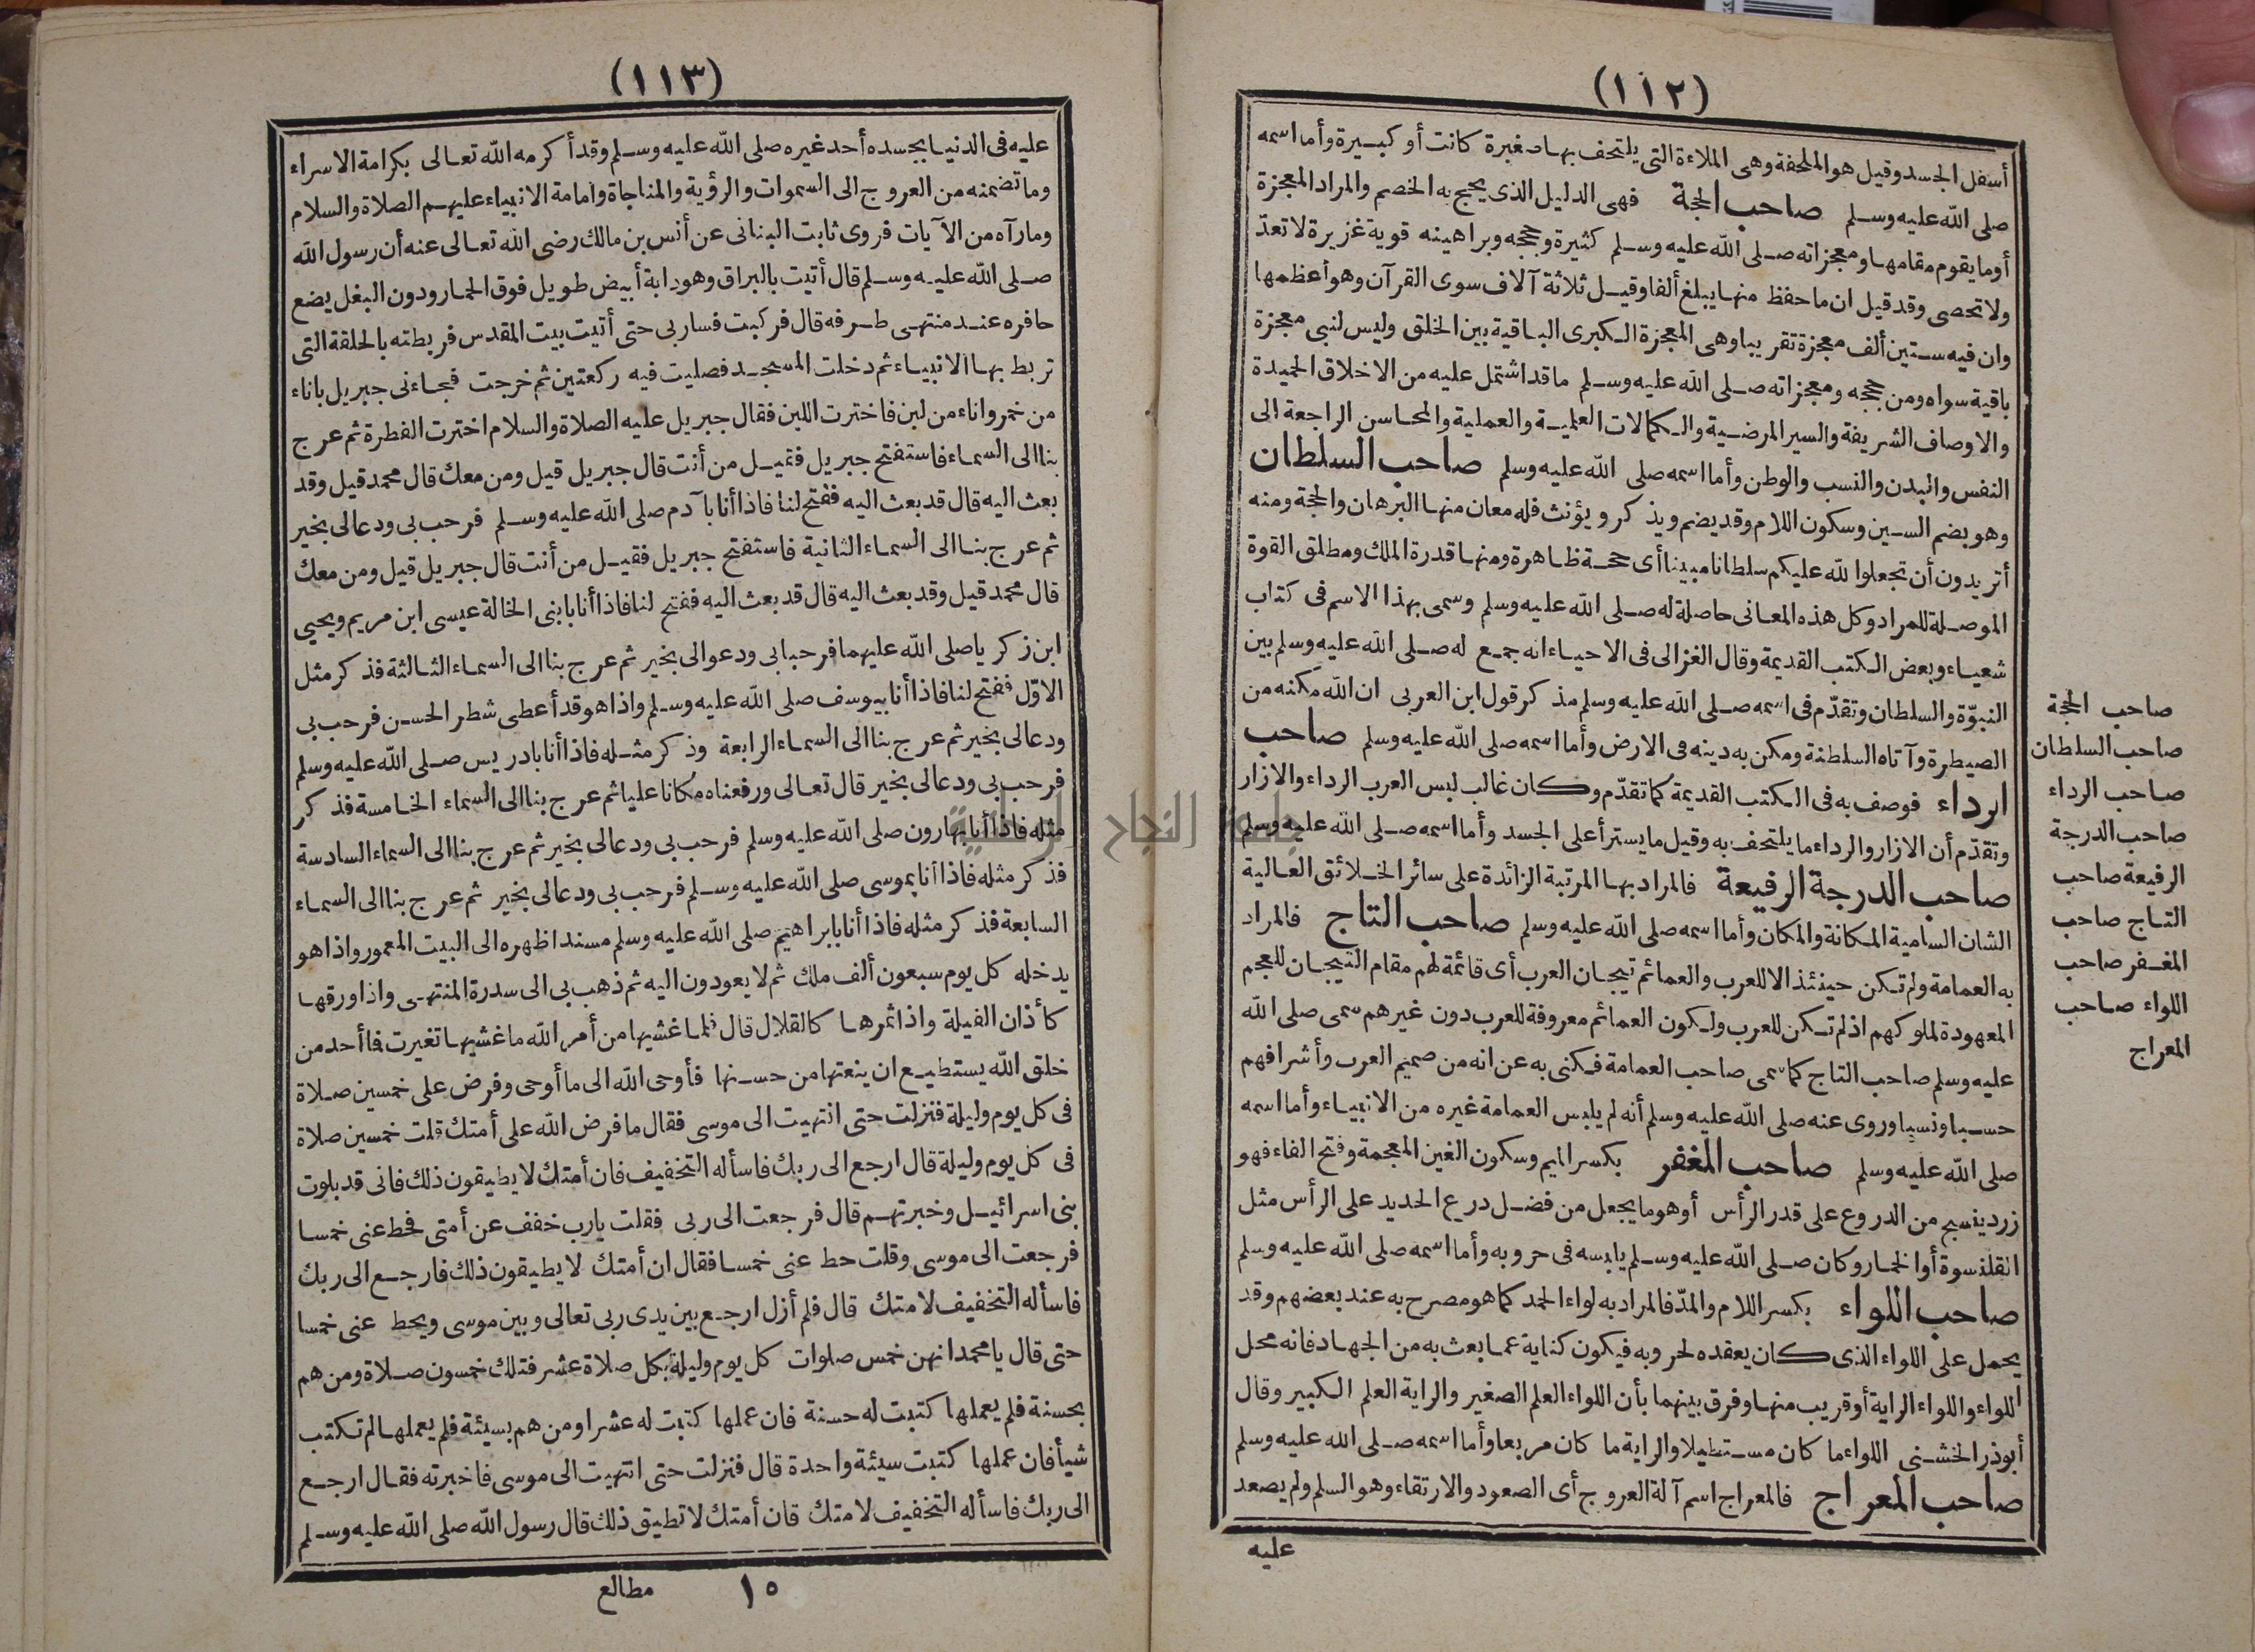 (١١٢)
أسفل الجسد وقيل هو الملحفة وهى الملاءة التى يلتحف بها صغيرة كانت أو كبيرة وأما اسمه
صلى الله عليه وسلم صاحب الحجة فهى الدليل الذى يحج به الخصم والمراد المعجزة
أوما يقوم مقامها ومعجزاته صلى الله عليه وسلم كثيرة وحججه وبراهينه قوية غزيرة لا تعدّ
ولا تحصى وقد قيل ان ما حفظ منها يبلغ ألفا وقيل ثلاثة آلاف سوى القرآن وهو أعظمها
وان فيه ستين ألف معجزة تقريبا وهى المعجزة الكبرى الباقية بين الخلق وليس لنبى معجزة
باقية سواه ومن حججه ومعجزاته صلى الله عليه وسلم ما قد اشتمل عليه من الاخلاق الحميدة
والاوصاف الشريفة والسير المرضية والكمالات العلمية والعملية والمحاسن الراجعة الى
النفس والبدن والنسب والوطن وأما اسمه صلى الله عليه وسلم صاحب السلطان
وهو بضم السين وسكون اللام وقد يضم ويذكر ويؤنث فله معان منها البرهان والحجة ومنه
أتريدون أن تجعلوا لله عليكم سلطانا مبينا أى حجة ظاهرة ومنها قدرة الملك ومطلق القوة
الموصلة للمراد وكل هذه المعانى حاصلة له صلى الله عليه وسلم وسمى بهذا الاسم فى كتاب
شعياء وبعض الكتب القديمة وقال الغزالى فى الاحياء انه جمع له صلى الله عليه وسلم بين
النبوّة والسلطان وتقدّم فى اسمه صلى الله عليه وسلم مذكر قول ابن العربى ان الله مكنه من
الصيطرة وآتاه السلطنة ومكن به دينه فى الارض وأما اسمه صلى الله عليه وسلم صاحب
الرداء فوصف به فى الكتب القديمة كما تقدّم وكان غالب لبس العرب الرداء والازار
وتقدّم أن الازار والرداء ما يلتحف به وقيل ما يستر أعلى الجسد وأما اسمه صلى الله عليه وسلم
صاحب الدرجة الرفيعة فالمراد بها المرتبة الزائدة على سائر الخلائق العالية
الشان السامية المكانة والمكان وأما اسمه صلى الله عليه وسلم صاحب التاج فالمراد
به العمامة ولم تكن حينئذ الا للعرب والعمائم تيجان العرب أى قائمة لهم مقام التيجان للعجم
المعهودة لملوكهم اذ لم تكن للعرب ولكون العمائم معروفة للعرب دون غيرهم سمى صلى الله
عليه وسلم صاحب التاج كما سمى صاحب العمامة فكنى به عن انه من صميم العرب وأشرافهم
حسبا ونسبا وروى عنه صلى الله عليه وسلم أنه لم يلبس العمامة غيره من الانبياء وأما اسمه
صلى الله عليه وسلم صاحب المغفر بكسر الميم وسكون الغين المعجمة وفتح الفاء فهو
زرد ينسج من الدروع على قدر الرأس أو هو ما يجعل من فضل درع الحديد على الرأس مثل
القلنسوة أو الخمار وكان صلى الله عليه وسلم يلبسه فى حروبه وأما اسمه صلى الله عليه وسلم
صاحب اللواء بكسر اللام والمدّ فالمراد به لواء الحمد كما هو مصرح به عند بعضهم وقد
يحمل على اللواء الذى كان يعقده لحروبه فيكون كناية عما بعث به من الجهاد فانه محل
اللواء واللواء الراية أو قريب منها وفرق بينهما بأن اللواء العلم الصغير والراية العلم الكبير وقال
أبوذر الخشنى اللواء ما كان مستطيلا والراية ما كان مربعا وأما اسمه صلى الله عليه وسلم
صاحب المعراج فالمعراج اسم آلة العروج أى الصعود والارتقاء وهو السلم ولم يصعد
عليه
صاحب الحجة
صاحب السلطان
صاحب الرداء
صاحب الدرجة
الرفيعة صاحب
التاج صاحب
المغفر صاحب
اللواء صاحب
المعراج
(١١٣)
عليه فى الدنيا بجسده أحد غيره صلى الله عليه وسلم وقد أكرمه الله تعالى بكرامة الاسراء
وما تضمنه من العروج الى السموات والرؤية والمناجاة وامامة الانبياء عليهم الصلاة والسلام
وما رآه من الآيات فروى ثابت البنانى عن أنس بن مالك رضى الله تعالى عنه أن رسول الله
صلى الله عليه وسلم قال أتيت بالبراق وهو دابة أبيض طويل فوق الحمار ودون البغل يضع
حافره عند منتهى طرفه قال فركبت فسار بى حتى أتيت بيت المقدس فربطته بالحلقة التى
تربط بها الانبياء ثم دخلت المسجد فصليت فيه ركعتين ثم خرجت فجاءنى جبريل باناء
من خمر واناء من لبن فاخترت اللبن فقال جبريل عليه الصلاة والسلام اخترت الفطرة ثم عرج
بنا الى السماء فاستفتح جبريل فقيل من أنت قال جبريل قيل ومن معك قال محمد قيل وقد
بعث اليه قال قد بعث اليه ففتح لنا فاذا أنا بآدم صلى الله عليه وسلم فرحب بى ودعالى بخير
ثم عرج بنا الى السماء الثانية فاستفتح جبريل فقيل من أنت قال جبريل قيل ومن معك
قال محمد قيل وقد بعث اليه قال قد بعث اليه ففتح لنا فاذا أنا بابنى الخالة عيسى ابن مريم ويحيى
ابن زكريا صلى الله عليهما فرحبا بى ودعوا لى بخير ثم عرج بنا الى السماء الثالثة فذكر مثل
الاوّل ففتح لنا فاذا أنا بيوسف صلى الله عليه وسلم واذا هو قد أعطى شطر الحسن فرحب بى
ودعالى بخير ثم عرج بنا الى السماء الرابعة وذكر مثله فاذا أنا بادريس صلى الله عليه وسلم
فرحب بى ودعالى بخير قال تعالى ورفعناه مكانا عليا ثم عرج بنا الى السماء الخامسة فذكر
مثله فاذا أنا بهارون صلى الله عليه وسلم فرحب بى ودعالى بخير ثم عرج بنا الى السماء السادسة
فذكر مثله فاذا أنا بموسى صلى الله عليه وسلم فرحب بى ودعالى بخير ثم عرج بنا الى السماء
السابعة فذكر مثله فاذا أنا بابراهيم صلى الله عليه وسلم مسندا ظهره الى البيت المعمور واذا هو
يدخله كل يوم سبعون ألف ملك ثم لا يعودون اليه ثم ذهب بى الى سدرة المنتهى واذا ورقها
كأذان الفيلة واذا ثمرها كالقلال قال فلما غشيها من أمر الله ما غشيها تغيرت فما أحد من
خلق الله يستطيع ان ينعتها من حسنها فأوحى الله الى ما أوحى وفرض على خمسين صلاة
فى كل يوم وليلة فنزلت حتى انتهيت الى موسى فقال ما فرض الله على أمتك قلت خمسين صلاة
فى كل يوم وليلة قال ارجع الى ربك فاسأله التخفيف فان أمتك لا يطيقون ذلك فانى قد بلوت
بنى اسرائيل وخبرتهم قال فرجعت الى ربى فقلت يارب خفف عن أمتى فحط عنى خمسا
فرجعت الى موسى وقلت حط عنى خمسا فقال ان أمتك لا يطيقون ذلك فارجع الى ربك
فاسأله التخفيف لامتك قال فلم أزل ارجع بين يدى ربى تعالى وبين موسى ويحط عنى خمسا
حتى قال يا محمد انهن خمس صلوات كل يوم وليلة بكل صلاة عشر فتلك خمسون صلاة ومن هم
بحسنة فلم يعملها كتبت له حسنة فان عملها كتبت له عشرا ومن هم بسيئة فلم يعملها لم تكتب
شيأ فان عملها كتبت سيئة واحدة قال فنزلت حتى انتهيت الى موسى فاخبرته فقال ارجع
الى ربك فاسأله التخفيف لامتك فان أمتك لا تطيق ذلك قال رسول الله صلى الله عليه وسلم
١٥ مطالع